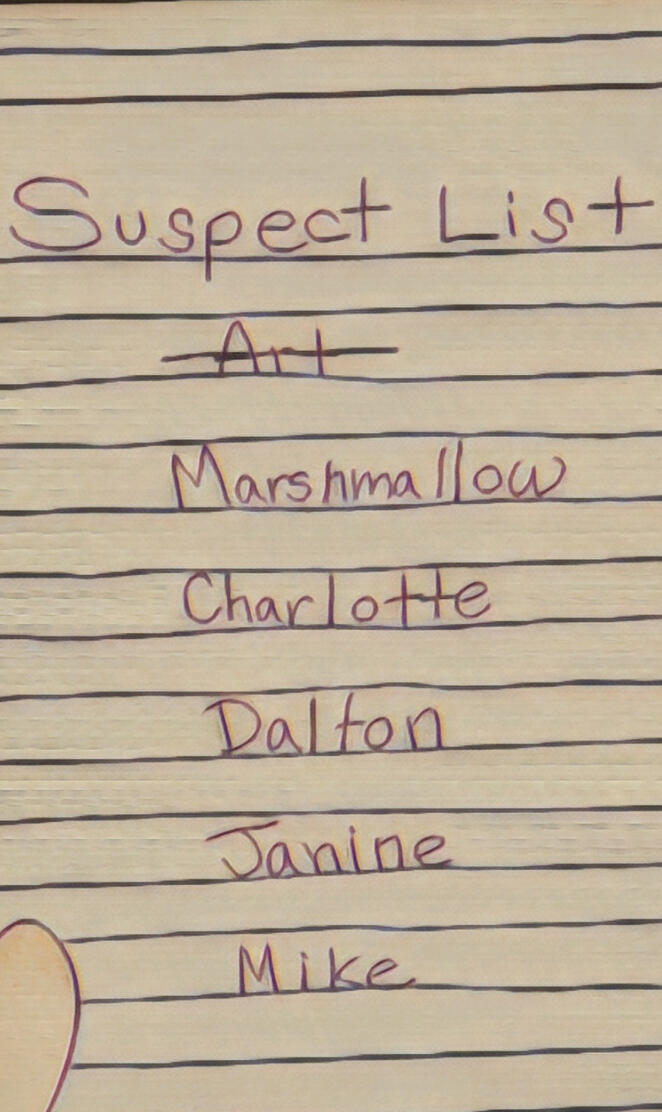 Suspect List
Art
Marshmallow
Charlotte
Dalton
Janine
Mike